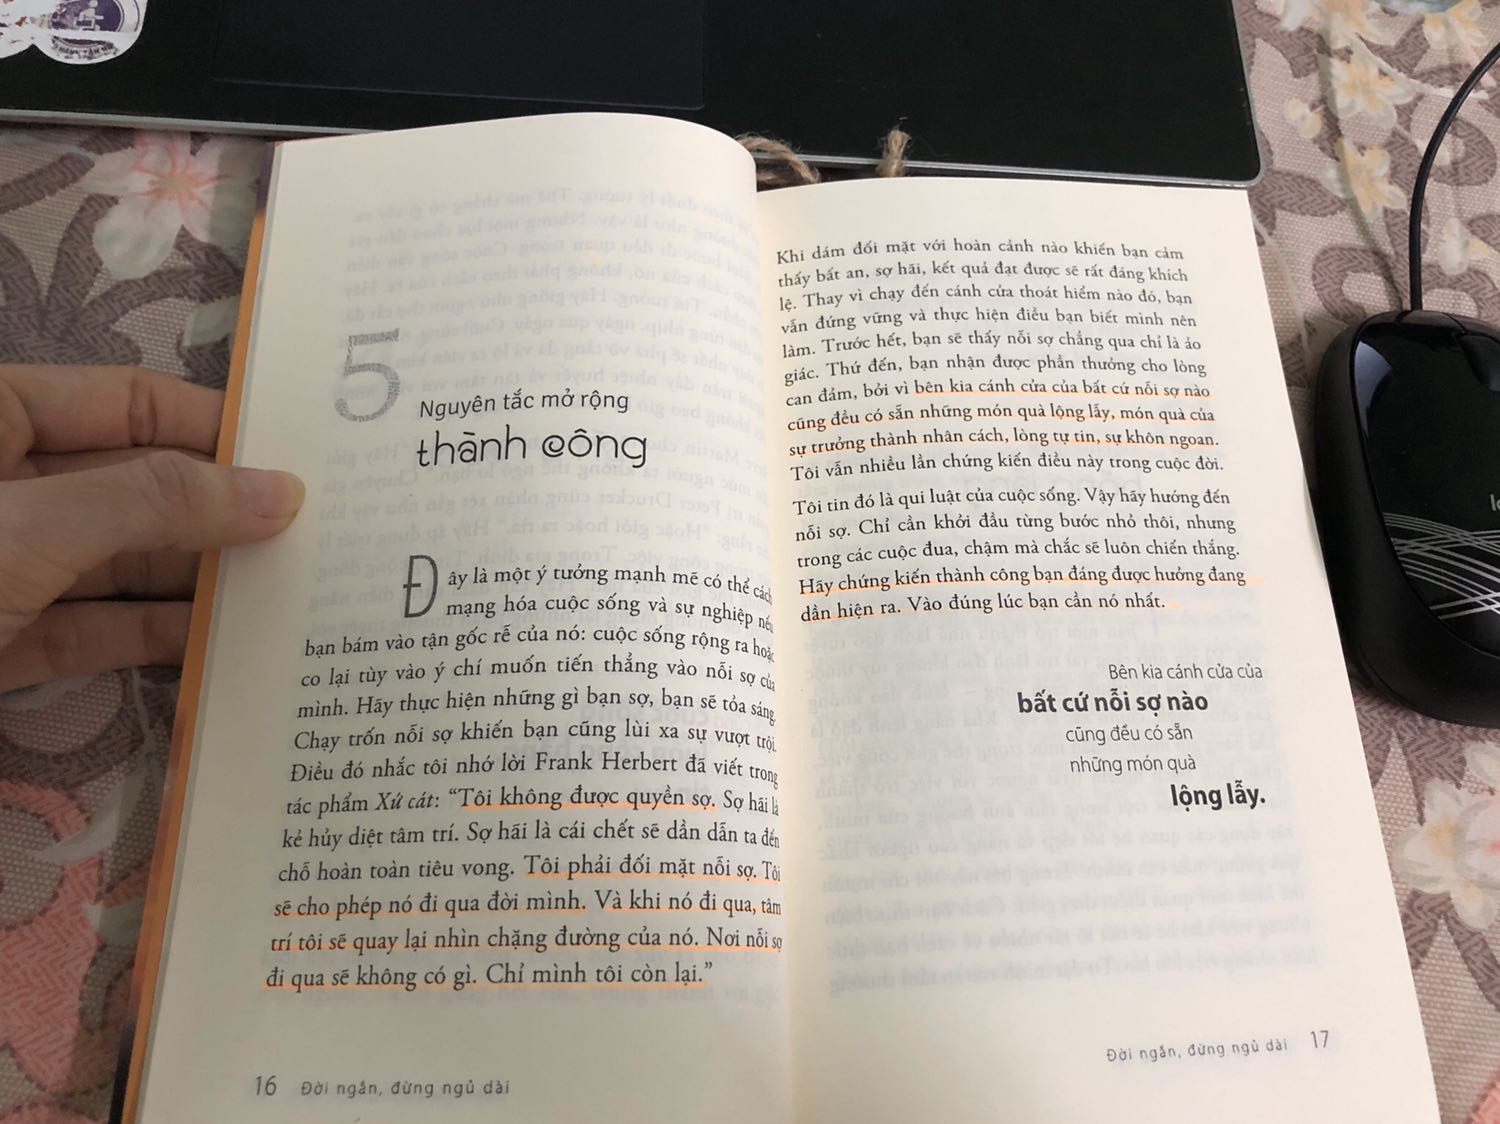 5
Nguyên tắc mở rộng
thành công
Đây là một ý tưởng mạnh mẽ có thể cách
mạng hóa cuộc sống và sự nghiệp nếu
bạn bám vào tận gốc rễ của nó: cuộc sống rộng ra hoặc
co lại tùy vào ý chí muốn tiến thẳng vào nỗi sợ của
mình. Hãy thực hiện những gì bạn sợ, bạn sẽ tỏa sáng.
Chạy trốn nỗi sợ khiến bạn cũng lùi xa sự vượt trội.
Điều đó nhắc tôi nhớ lời Frank Herbert đã viết trong
tác phẩm Xứ cát: “Tôi không được quyền sợ. Sợ hãi là
kẻ hủy diệt tâm trí. Sợ hãi là cái chết sẽ dần dẫn ta đến
chỗ hoàn toàn tiêu vong. Tôi phải đối mặt nỗi sợ. Tôi
sẽ cho phép nó đi qua đời mình. Và khi nó đi qua, tâm
trí tôi sẽ quay lại nhìn chặng đường của nó. Nơi nỗi sợ
đi qua sẽ không có gì. Chỉ mình tôi còn lại.”
16 Đời ngắn, đừng ngủ dài
Khi dám đối mặt với hoàn cảnh nào khiến bạn cảm
thấy bất an, sợ hãi, kết quả đạt được sẽ rất đáng khích
lệ. Thay vì chạy đến cánh cửa thoát hiểm nào đó, bạn
vẫn đứng vững và thực hiện điều bạn biết mình nên
làm. Trước hết, bạn sẽ thấy nỗi sợ chẳng qua chỉ là ảo
giác. Thứ đến, bạn nhận được phần thưởng cho lòng
can đảm, bởi vì bên kia cánh cửa của bất cứ nỗi sợ nào
cũng đều có sẵn những món quà lộng lẫy, món quà của
sự trưởng thành nhân cách, lòng tự tin, sự khôn ngoan.
Tôi vẫn nhiều lần chứng kiến điều này trong cuộc đời.
Tôi tin đó là qui luật của cuộc sống. Vậy hãy hướng đến
nỗi sợ. Chỉ cần khởi đầu từng bước nhỏ thôi, nhưng
trong các cuộc đua, chậm mà chắc sẽ luôn chiến thắng.
Hãy chứng kiến thành công bạn đáng được hưởng đang
dần hiện ra. Vào đúng lúc bạn cần nó nhất.
Bên kia cánh cửa của
bất cứ nỗi sợ nào
cũng đều có sẵn
những món quà
lộng lẫy.
Đời ngắn, đừng ngủ dài 17